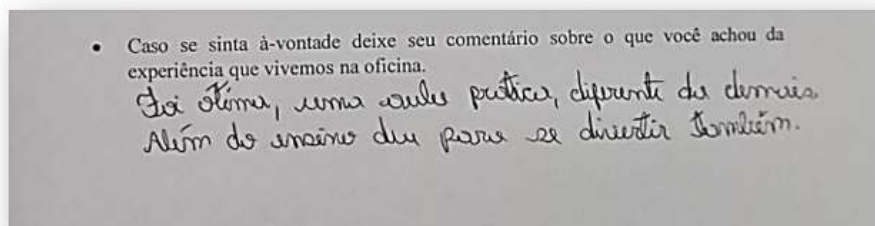 • Caso se sinta à-vontade deixe seu comentário sobre o que você achou da
experiência que vivemos na oficina.
Foi ótima, uma aula prática, diferente das demais
Além do ensino deu para se divertir também.